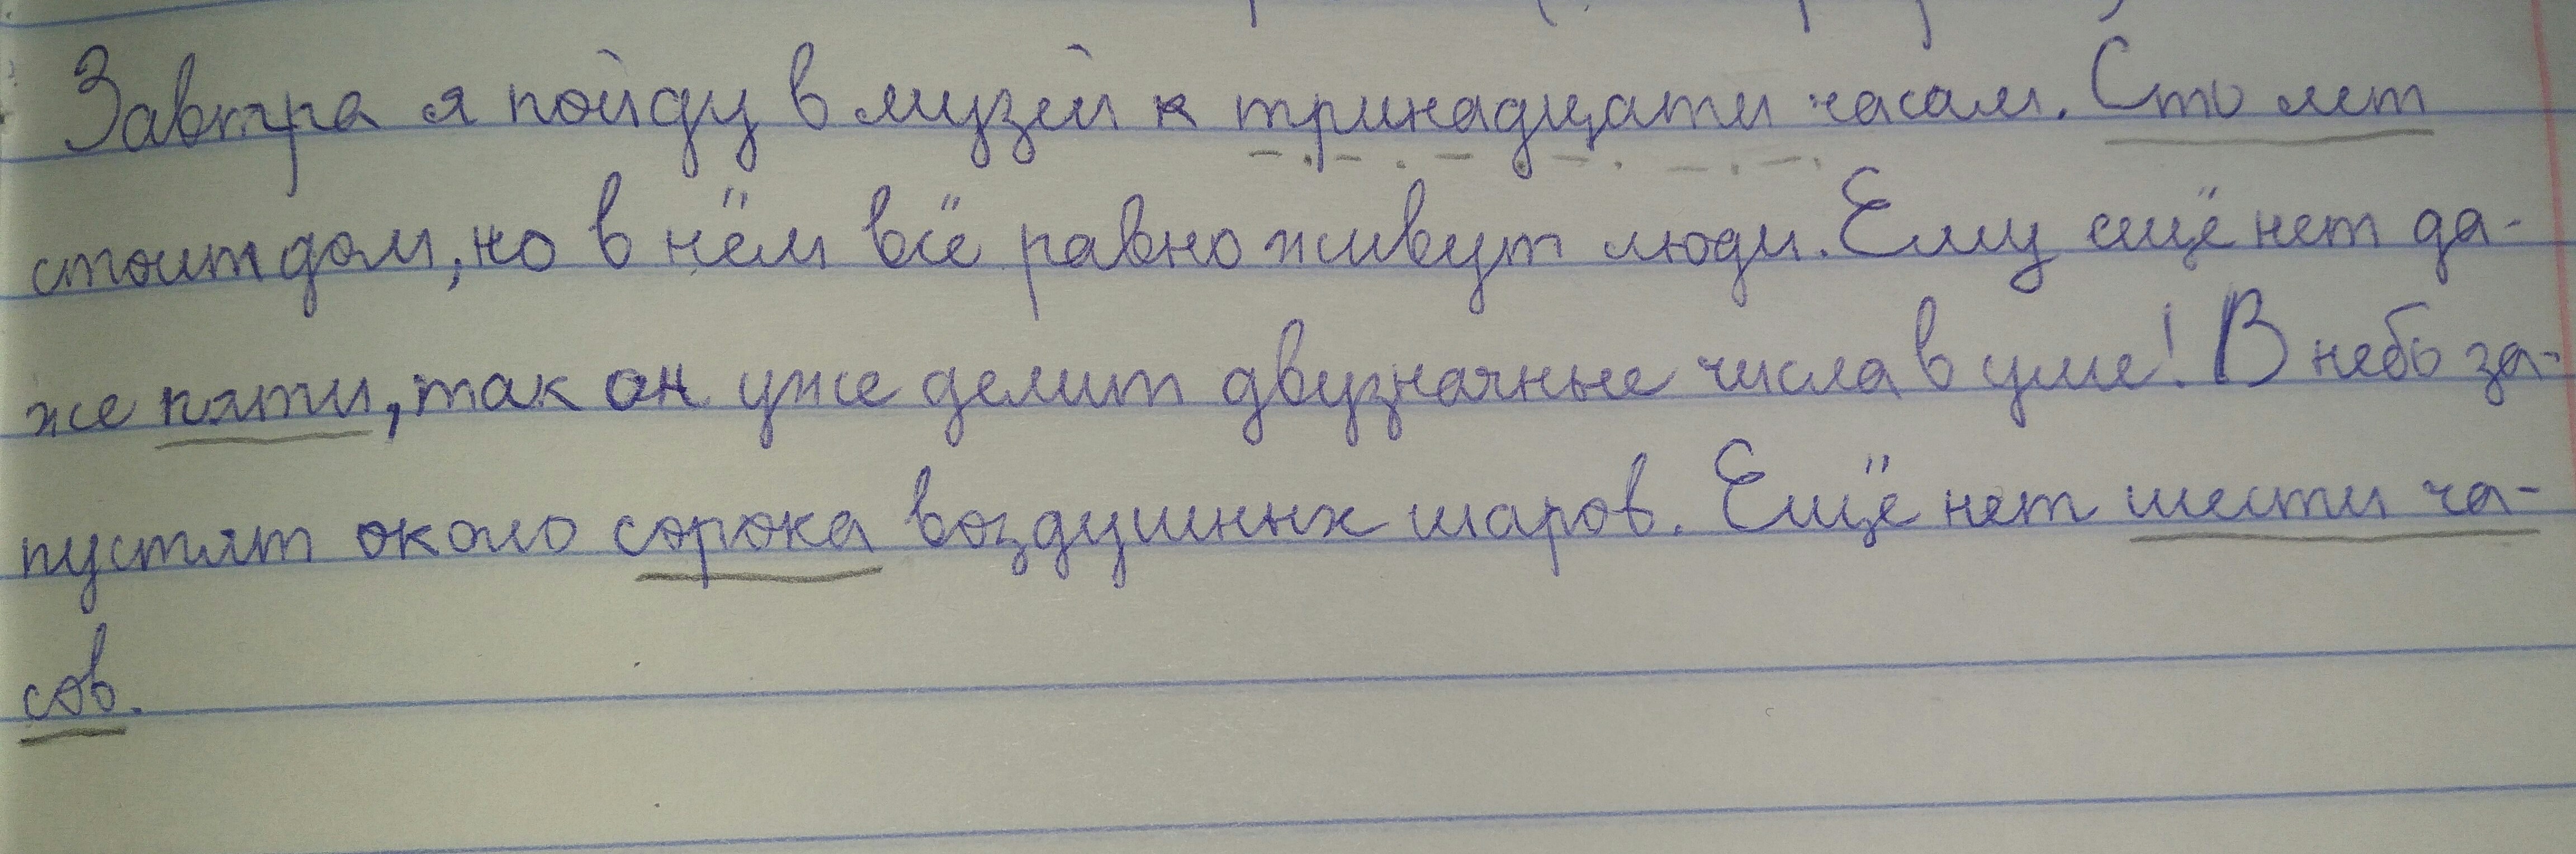 Завтра я пойду в музей к тринадцати часам. Сто лет
стоит дом, но в нём всё равно живут люди. Ему ещё нет да-
же пяти, так он уже делит двузначные числа в уме! В небо за-
пустят около сорока воздушных шаров. Ещё нет шести ча-
сов.